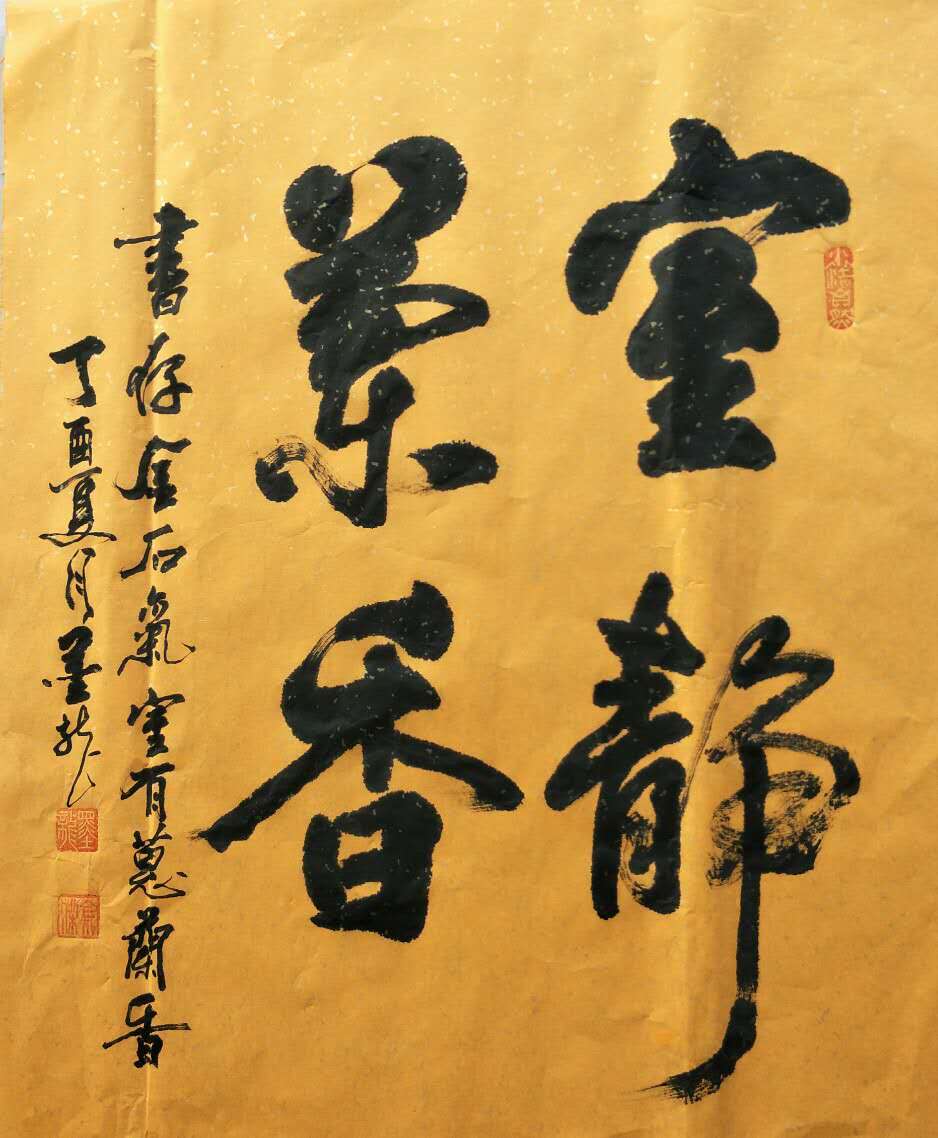 室静
蘭香
書存金石氣室有蕙蘭香
丁酉夏月墨龍
墨龍